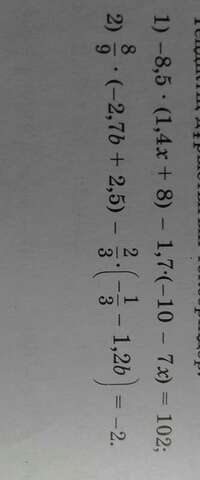 1) −8,5 · (1,4x + 8) − 1,7·(−10 − 7x) = 102;
2) 8/9 · (−2,7b + 2,5) − 2/3 · (−1/3 − 1,2b) = −2.